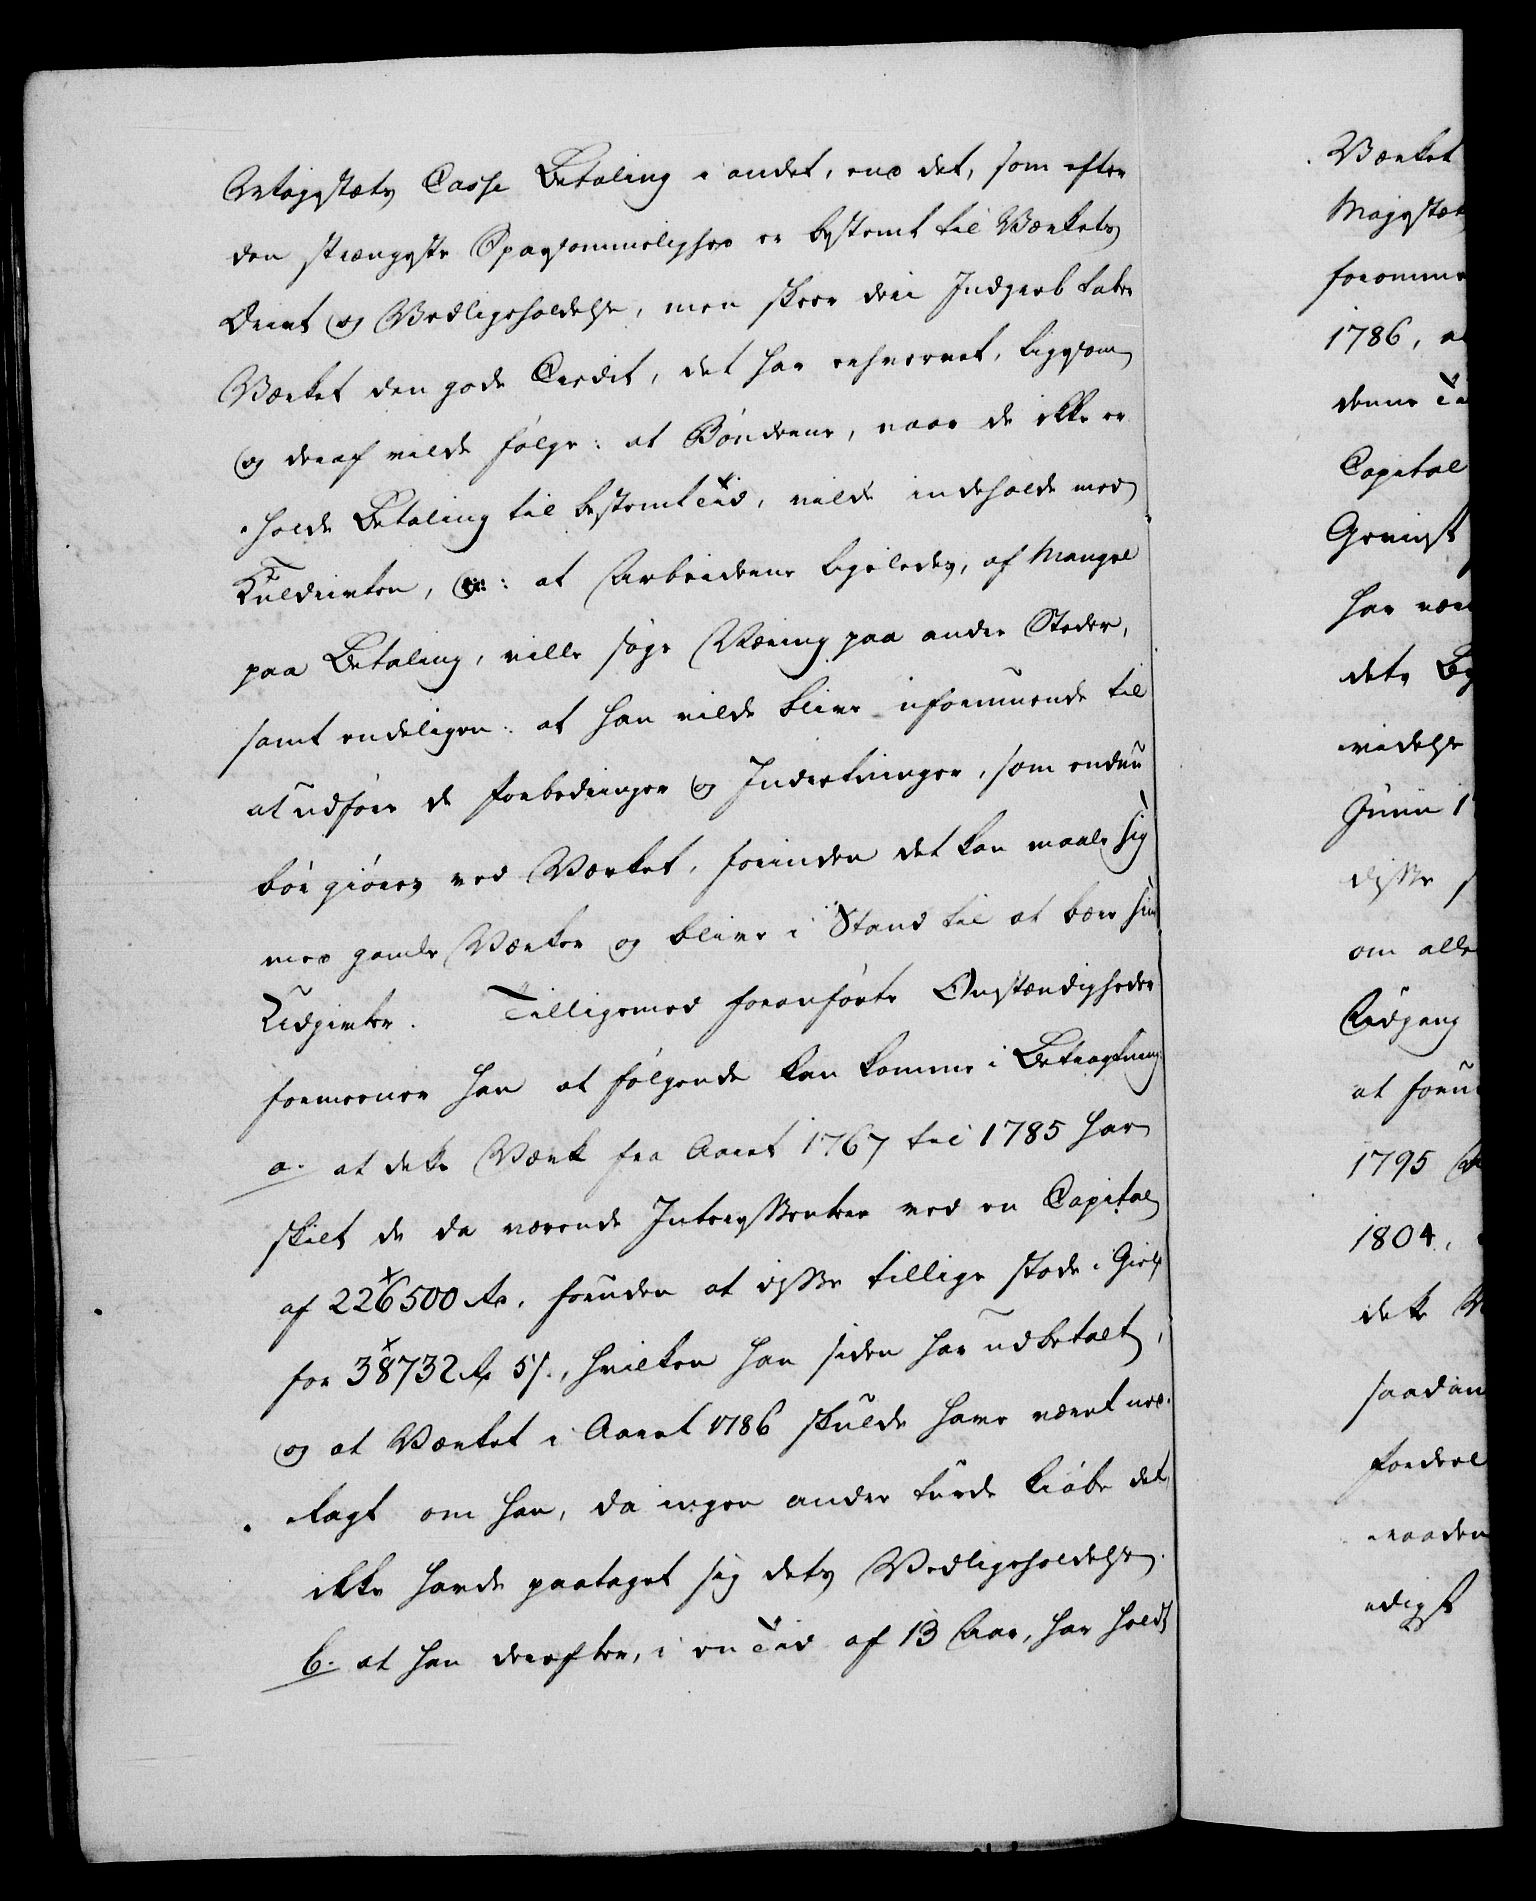 Majestæts Casse Betaling i andet, end det, som efter
den strængeste Sparsommelighed er bestemt til Værkets
Drivt og Vedligeholdelse, men skeer deri Indgreb taber
Værket den gode Credit, det har erhvervet, ligesom
og deraf vilde følge: at Bønderne, naar de ikke er
holde Betaling til bestemt Tiid, vilde indeholde med
Kuldrivten, at Arbeiderne ligeledes, af Mangel
paa Betaling, ville søge Næring paa andre Steder,
samt endeligen: at han vilde blive uformuende til
at udføre de Forbedringer og Indretninger, som endnu
bør giøres ved Værket, forinden det kan maale sig
med gamle Værker og blive i Stand til at bære sine
Udgivter. Tilligemed foranførte Omstændigheder
formeener han at følgende kan komme i Betragtning
a. at dette Værk fra Aaret 1767 til 1785 har
skilt de da værende Interessentere ved en Capital
af 226500 Rd, foruden at disse tillige stode i Gield
for 38732 Rd 5 s., hvilken han siden har udbetalt,
og at Værket i Aaret 1786 skulde have været ned-
lagt om han, da ingen anden turde kiøbe det,
ikke havde paataget sig dets Vedligeholdelse.
b. at han derefter, i en Tiid af 13 Aar, har holdt
Værket
Majestæt
1786,
denne
Capital
Gevinst
har
dets
Junii 1
disse
om alle
Udgang
at
1795
1804,
dette